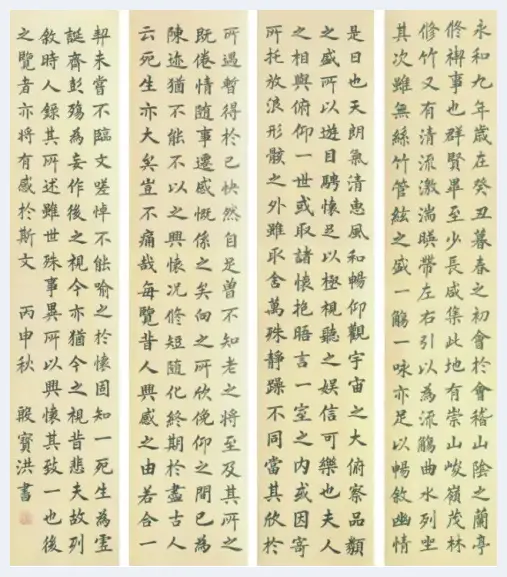 永和九年歲在癸丑暮春之初會於會稽山陰之蘭亭
修禊事也群賢畢至少長咸集此地有崇山峻嶺茂林
修竹又有清流激湍暎帶左右引以為流觴曲水列坐
其次雖無絲竹管絃之盛一觴一咏亦足以暢敘幽情
是日也天朗氣清惠風和暢仰觀宇宙之大俯察品類
之盛所以遊目騁懷足以極視聽之娛信可樂也夫人
之相與俯仰一世或取諸懷抱晤言一室之內或因寄
所托放浪形骸之外雖取舍萬殊靜躁不同當其欣於
所遇暫得於己快然自足曾不知老之將至及其所之
既倦情隨事遷感慨係之矣向之所欣俛仰之間已為
陳迹猶不能不以之興懷況修短隨化終期於盡古人
云死生亦大矣豈不痛哉每覽昔人興感之由若合一
契未嘗不臨文嗟悼不能喻之於懷固知一死生為虛
誕齊彭殤為妄作後之視今亦猶今之視昔悲夫故列
敘時人錄其所述雖世殊事異所以興懷其致一也後
之覽者亦將有感於斯文 丙申秋 殷寶洪書